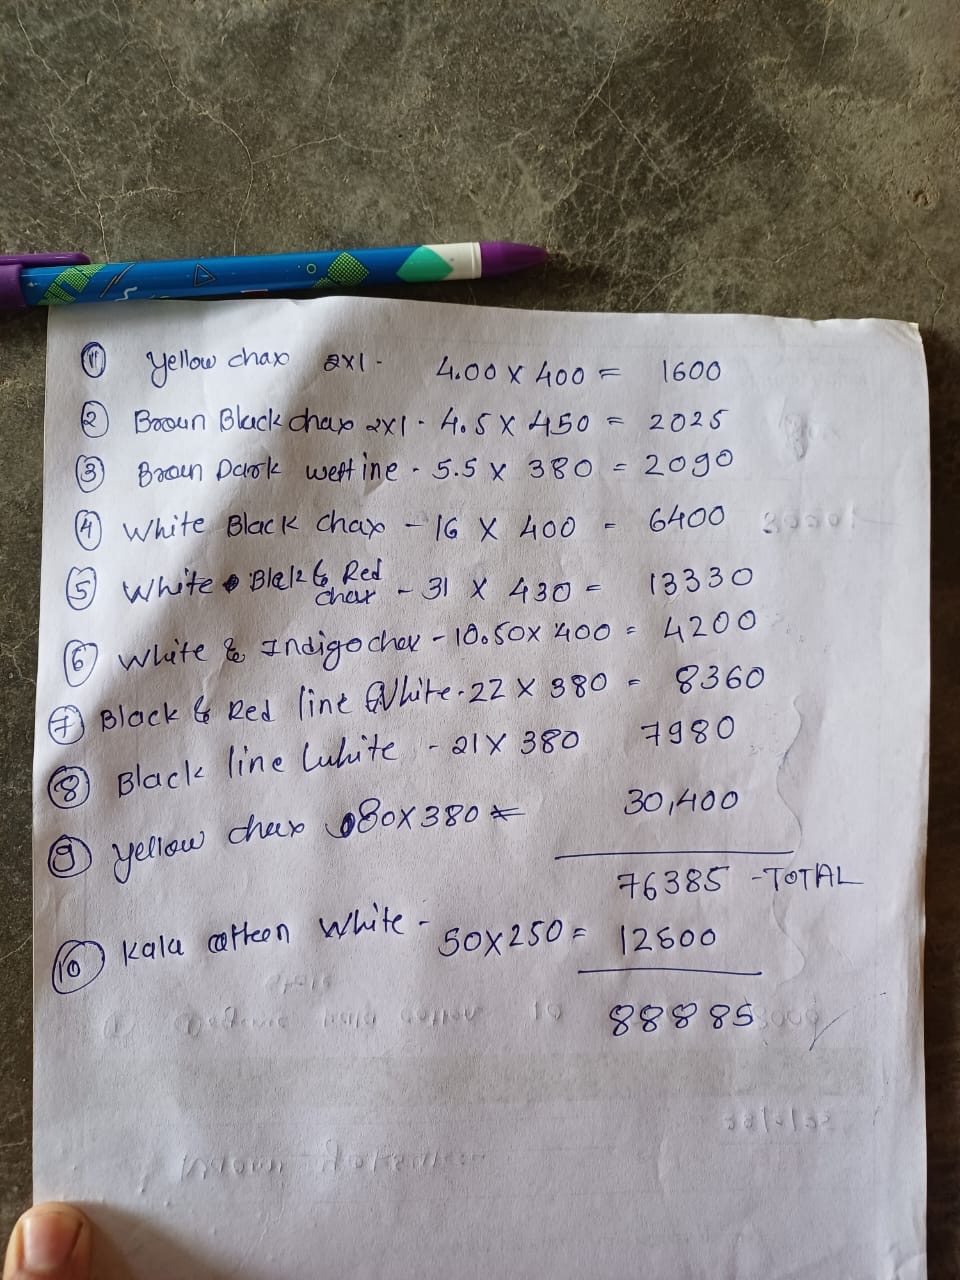 ① Yellow chax 2x1 - 4.00 X 400 = 1600
② Broun Black chax 2x1 - 4.5 X 450 = 2025
③ Broun Dark weft ine - 5.5 X 380 = 2090
④ White Black chax - 16 X 400 = 6400
⑤ White Black & Red chax - 31 X 430 = 13330
⑥ White & Indigo chex - 10.50 X 400 = 4200
⑦ Black & Red line White - 22 X 380 = 8360
⑧ Black line White - 21 X 380 7980
⑨ Yellow chex 80 X 380 = 30,400
76385 - TOTAL
⑩ Kala cotteen White - 50 X 250 = 12500
88885